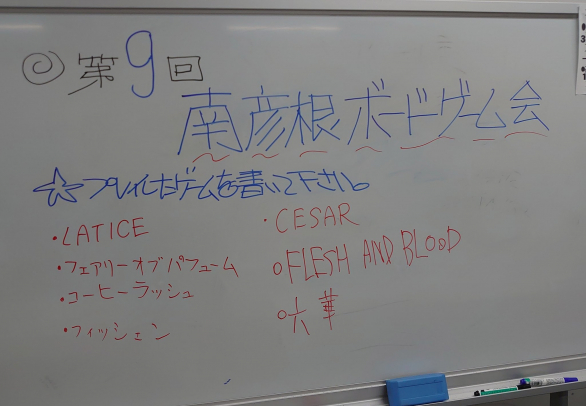 ◎第9回
南彦根ボードゲーム会
☆プレイしたゲームを書いて下さい。
・LATICE
・フェアリーオブパフューム
・コーヒーラッシュ
・フィッシェン
・CESAR
○FLESH AND BLOOD
○六華